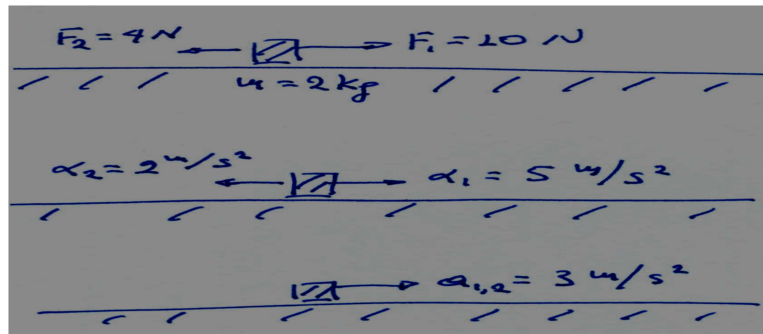 F₂ = 4 N F₁ = 10 N
m = 2 kg
α₂ = 2 m/s² α₁ = 5 m/s²
a₁,₂ = 3 m/s²